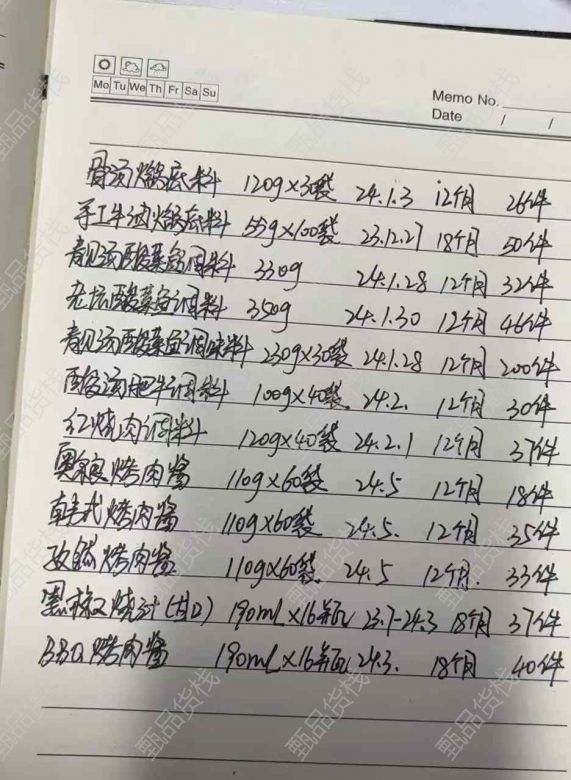 Mo Tu We Th Fr Sa Su
Memo No.
Date / /
骨汤火锅底料 120g×30袋 24.1.3 12个月 26件
手工牛油火锅底料 55g×100袋 23.12.27 18个月 50件
青见汤酸菜鱼调料 330g 24.1.28 12个月 32件
老坛酸菜鱼调料 350g 24.1.30 12个月 46件
青见汤酸菜鱼调味料 230g×30袋 24.1.28 12个月 200件
酸汤肥牛调料 100g×40袋 24.2. 12个月 30件
红烧肉调料 120g×40袋 24.2.1 12个月 37件
奥良烤肉酱 110g×60袋 24.5 12个月 18件
韩式烤肉酱 110g×60袋 24.5. 12个月 35件
孜然烤肉酱 110g×60袋 24.5 12个月. 33件
黑椒叉烧汁 190mL×16瓶 23.7-24.3 18个月 37件
BBQ烤肉酱 190mL×16瓶 24.3. 18个月 40件
甄品货栈